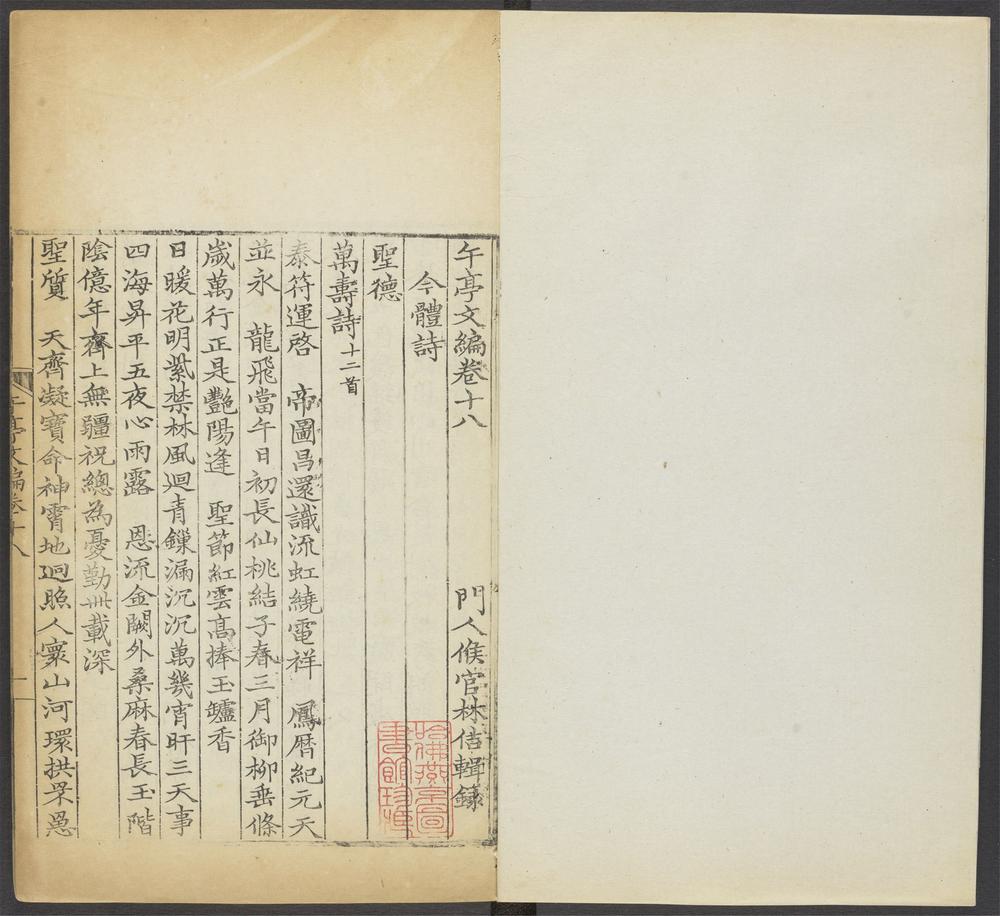 午亭文編卷十八 門人侯官林佶輯錄
今體詩
聖德
萬壽詩十二首
泰符運啓 帝圖昌還識流虹繞電祥 鳳曆紀元天
並永 龍飛當午日初長仙桃結子春三月御柳垂條
歲萬行正是艷陽逢 聖節紅雲高捧玉罏香
日暖花明紫禁林風廻青鏁漏沉沉萬幾宵旰三天事
四海昇平五夜心雨露 恩流金闕外桑麻春長玉階
陰億年齊上無疆祝總為憂勤卅載深
聖質 天齊凝寶命神霄地迥照人寰山河環拱眾
午亭文編卷十八
一
哈佛燕京圖
書館珍藏